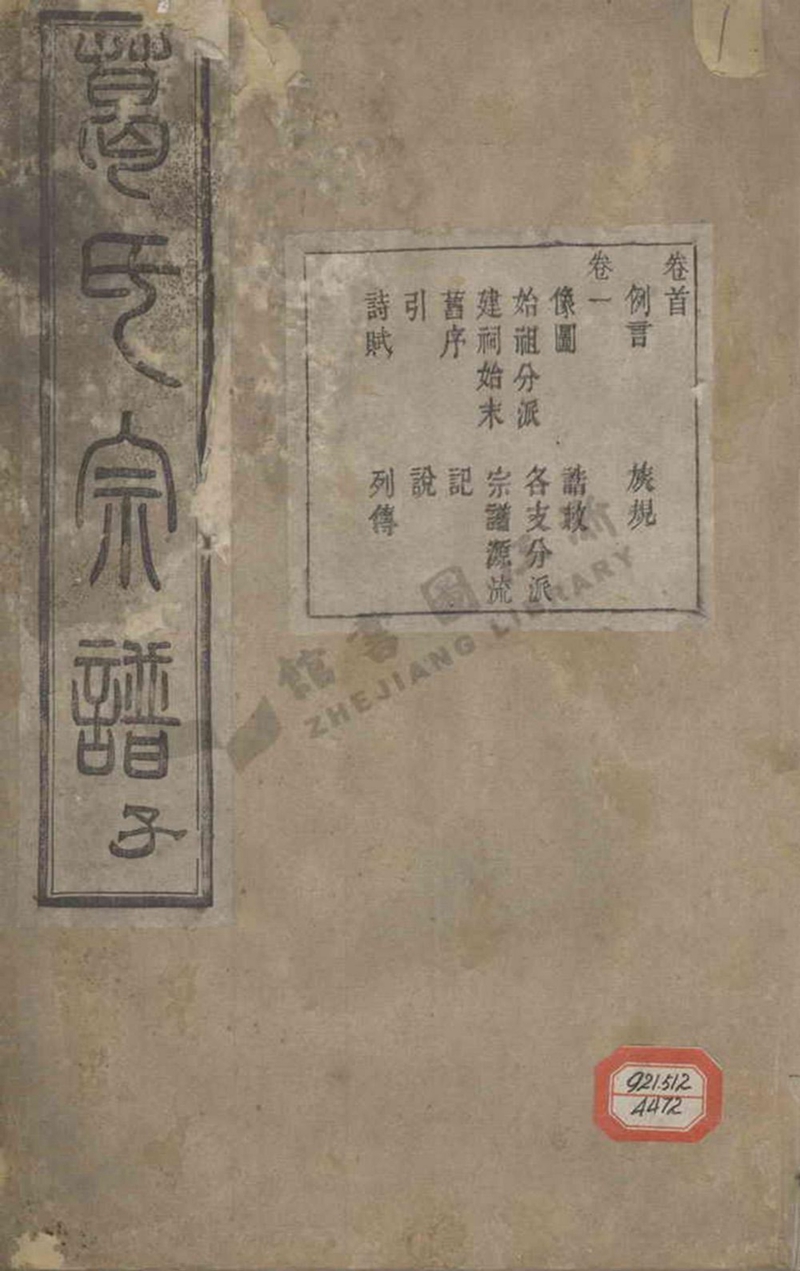 葛氏宗譜 子
卷首
例言 族規
卷一
像圖 誥敕
始祖分派 各支分派
建祠始末 宗譜源流
舊序 記
引 說
詩賦 列傳
浙江圖書館
ZHEJIANG LIBRARY
1
921.512
4472